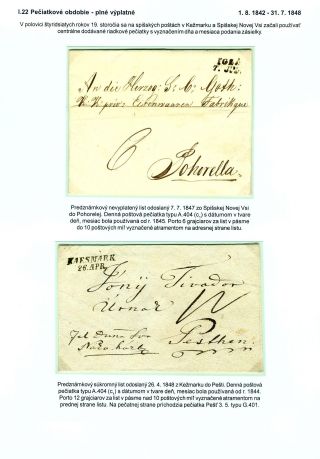 I.22 Pečiatkové obdobie - plné výplatné
1. 8. 1842 - 31. 7. 1848
V polovici štyridsiatych rokov 19. storočia sa na spišských poštách v Kežmarku a Spišskej Novej Vsi začali používať
centrálne dodávané riadkové pečiatky s vyznačením dňa a mesiaca podania zásielky.
IGLÓ
7. JUL.
An die Herzog: S: C: Goth:
K: K: priv: Eisenwaaren Fabrique
6
Pohorella.
Predznámkový nevyplatený list odoslaný 7. 7. 1847 zo Spišskej Novej Vsi
do Pohorelej. Denná poštová pečiatka typu A.404 (c₁) s dátumom v tvare
deň, mesiac bola používaná od r. 1845. Porto 6 grajciarov za list v pásme
do 10 poštových míľ vyznačené atramentom na adresnej strane listu.
KAESMARK
26. APR.
Tivador
Úrnak
Pesthen
Predznámkový súkromný list odoslaný 26. 4. 1848 z Kežmarku do Pešti. Denná poštová
pečiatka typu A.404 (c₁) s dátumom v tvare deň, mesiac bola používaná od r. 1844.
Porto 12 grajciarov za list v pásme nad 10 poštových míľ vyznačené atramentom na
prednej strane listu. Na pečatnej strane príchodzia pečiatka Pešť 3. 5. typu G.401.